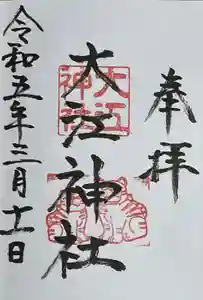 奉拝
大江神社
令和五年三月十一日
大江
神社